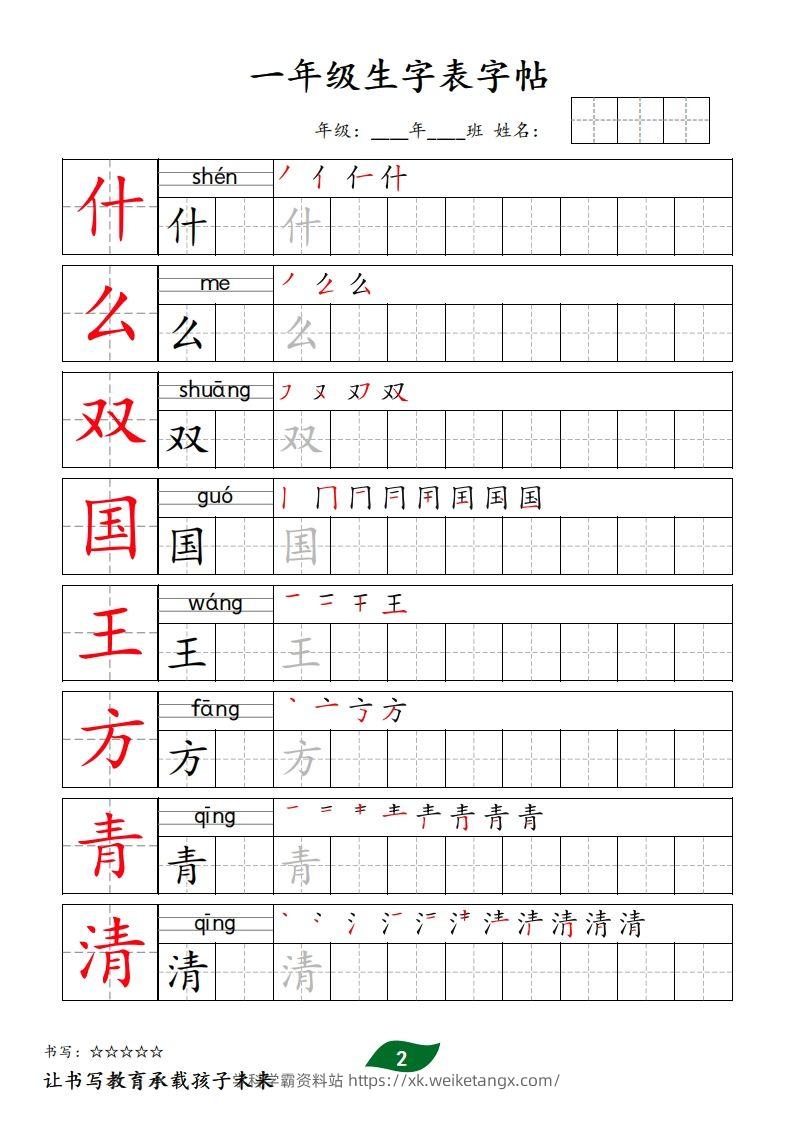 一年级生字表字帖
年级：____年____班 姓名：
什 shén 丿 亻 仁 什
什 什
么 me 丿 么 么
么 么
双 shuāng ㇇ 又 双 双
双 双
国 guó 丨 冂 冂 冃 用 国 国 国
国 国
王 wáng 一 二 干 王
王 王
方 fāng 丶 亠 亐 方
方 方
青 qīng 一 二 丰 龶 青 青 青
青 青
清 qīng 丶 冫 氵 清
清 清
书写：☆☆☆☆☆
2
让书写教育承载孩子未来
学科学霸资料站 https://xk.weiketangx.com/